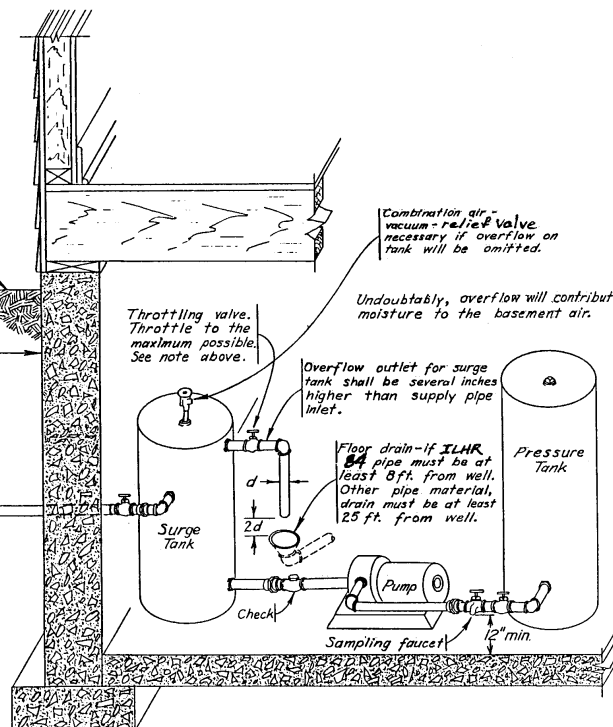 Combination air-
vacuum-relief valve
necessary if overflow on
tank will be omitted.
Undoubtably, overflow will contribut
moisture to the basement air.
Throttling valve.
Throttle to the
maximum possible.
See note above.
Overflow outlet for surge
tank shall be several inches
higher than supply pipe
inlet.
Floor drain-if ILHR
84 pipe must be at
least 8 ft. from well.
Other pipe material,
drain must be at least
25 ft. from well.
Pressure
Tank
d
2d
Surge
Tank
Pump
Check
Sampling faucet
12" min.